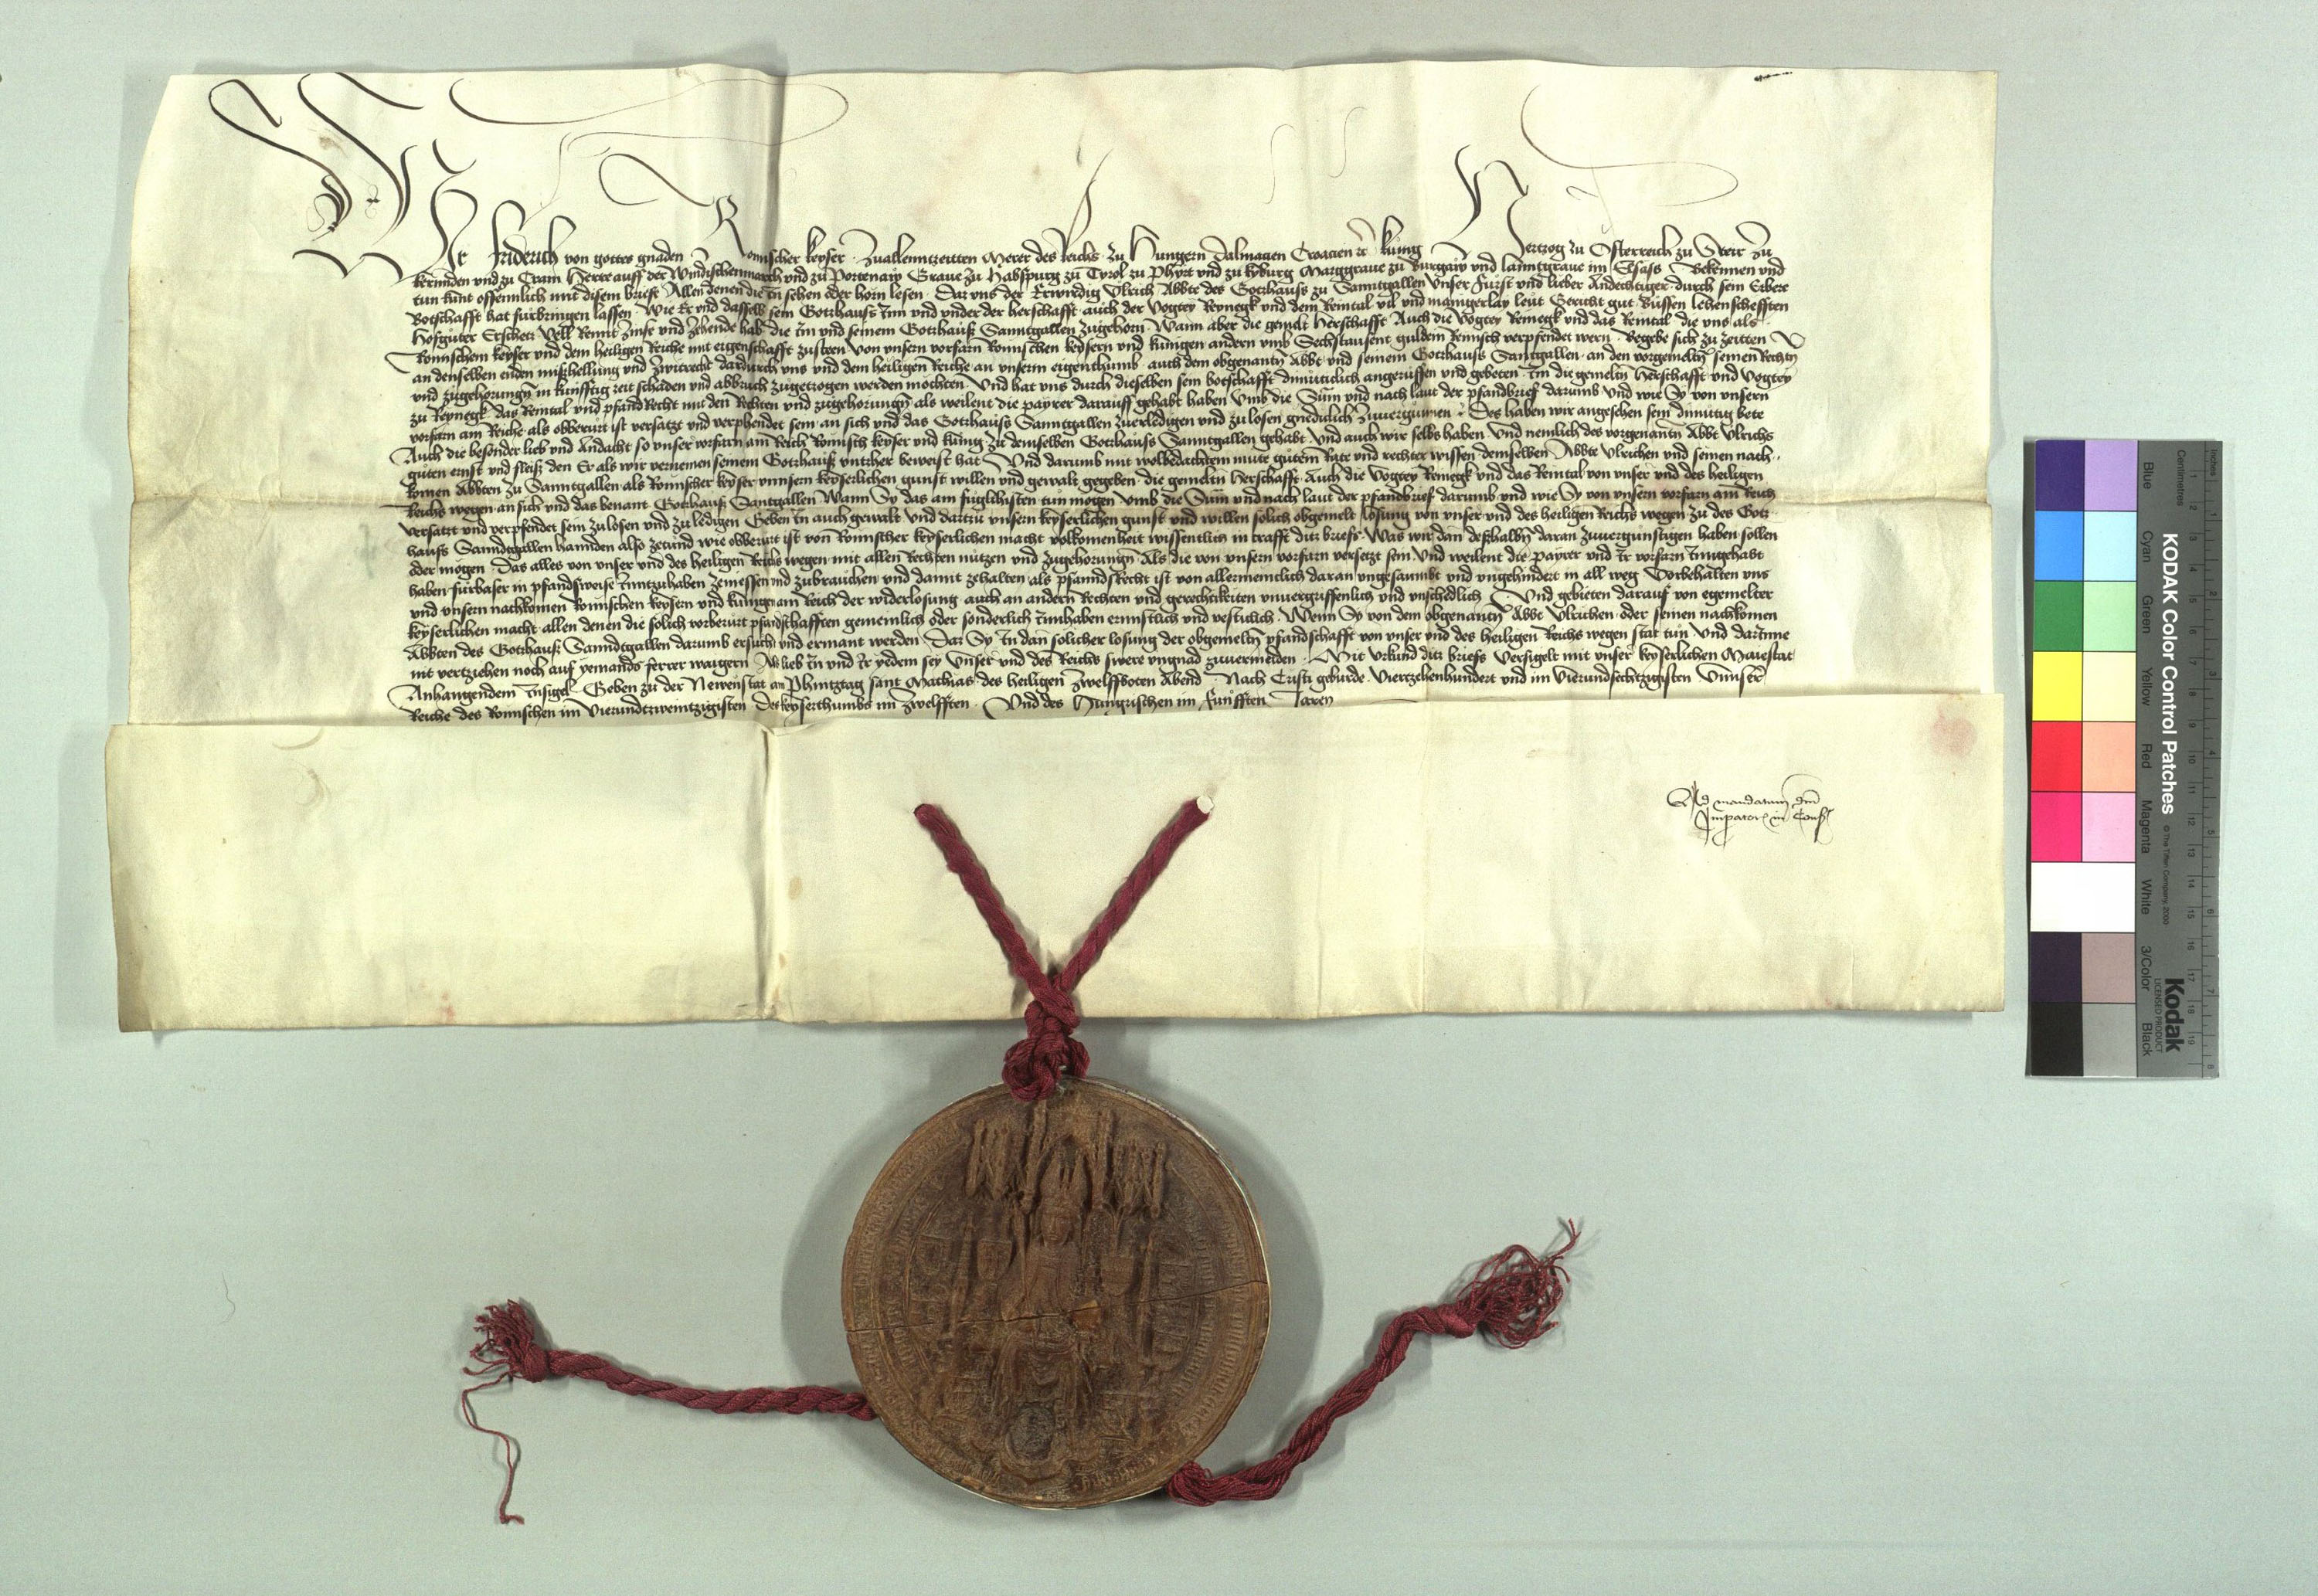 Wir Friderich von gottes gnaden Romischer keyser zuallenntzeitten Merer des Reichs zu Hungern Dalmacien Croacien etc kunig Hertzog zu Osterreich zu Steir zu
kernnden und zu Crain Herre auff der Windischenmarch und zu Portenaw Graue zu Habspurg zu Tyrol zu Phyrt und zu kyburg Marggraue zu Burgaw und lanntgraue im Elsass Bekennen und
tun kunt offennlich mit disem briefe Allen denen die In sehen oder horn lesen Daz uns der Erwirdig Ulrich Abbte des Gotzhauss zu Sanntgallen unser Furst und lieber Andechtiger durch sein Erbere
Botschafft hat furbringen lassen Wie Er und dasselb sein Gotzhauss Inn und under der herschafft auch der Vogtey Reynegk und dem Reintal vil und manigerlay leut Gericht gut Bussen lehenschefften
Hofguter Erschetz Vell Rennt Zinse und Zehende hab die In und seinem Gotzhauss Sanntgallen zugehorn Wann aber die gemelt Herschafft Auch die Vogtey Reinegk und das Reintal die uns als
Romischem keyser und dem heiligen Reiche mit eigenschafft zusteen von unsern vorfarn Romischen keysern und kunigen andern umb Sechstausent guldein Reinisch verpfendet wern Begebe sich zu zeitten
an denselben enden misshellung und zwitrecht dardurch uns und dem heiligen Reiche an unserm eigenthumb auch dem obgenantn Abbt und seinem Gotzhauss Santgallen an den vorgemeltn seinen Rechtn
und zugehorungn in kunfftig zeit schaden und abbruch zugetzogen werden mochten Und hat uns durch dieselben sein botschafft dmuticlich angeruffen und gebeten Im die gemeltn Herschafft und Vogtey
zu Reynegk das Reintal und pfand Recht mit den Rechten und zugehorungn als weilent die payrer darauff gehabt haben Umb die Sum und nach laut der pfandbrief darumb und wie Sy von unsern
vorfarn am Reiche als obberurt ist versatzt und verphendet sein an sich und das Gotzhauss Sanntgallen zuerledigen und zu losen gnediclich zuvergunnen Des haben wir angesehen sein dmutig bete
Auch die besonder lieb und Andacht so unser vorfarn am Reich Romisch keyser und kunig zu demselben Gotzhauss Sanntgallen gehabt Und auch wir selbs haben Und nemlich des vorgenantn Abbt Ulrichs
guten ernst und fleiss den Er als wir vernemen seinem Gotzhauss untzher beweist hat Und darumb mit wolbedachtem mute gutem Rate und rechter wissen demselben Abbte Ulrichen und seinen nach
komen Abbten zu Sanntgallen als Romischer keyser unnsern keyserlichen gunst willen und gewalt gegeben die gemeltn Herschafft Auch die Vogtey Reinegk und das Reintal von unser und des heiligen
Reichs wegen an sich und das benant Gotzhauss Santgallen Wann Sy das am fuglichisten tun mogen Umb die Sum und nach laut der pfandbrief darumb und wie Sy von unsern vorfarn am Reich
versatzt und verpfendet sein zu losen und zu ledigen Geben In auch gewalt und dartzu unsern keyserlichen gunst und willen solich obgemelt losung von unser und des heiligen Reichs wegen zu des Gotz
hauss Sanndtgallen hannden also zetund wie obberurt ist von Romischer keyserlichen macht volkomenheit wissentlich in crafft ditz briefs Was wir dan desshalbn daran zuvergunstigen haben sollen
oder mogen Das alles von unser und des heiligen Reichs wegen mit allen Rechten nutzen und zugehorungn Als die von unsern vorfarn versetzt sein Und weilent die payrer und Ir vorfarn Inngehabt
haben furbaser in pfandsweise Inntzuhaben zeniessen und zubrauchen und damit zehalten als pfannds Recht ist von allermeniclich daran ungesaumbt und ungehindert in all weg Vorbehalten uns
und unsern nachkomen Romischen keysern und kunigen am Reich der widerlosung auch an andern Rechten und gerechtikeiten unvergriffenlich und unschedlich Und gebieten darauf von egemelter
keyserlichen macht allen denen die solich vorberurt pfandschafften gemeinlich oder sonderlich Innhaben ernnstlich und vesticlich Wenn Sy von dem obgenantn Abbt Ulrichen oder seinen nachkomen
Abbten des Gotzhauss Sanndtgallen darumb ersucht und ermant werden Daz Sy In dan solicher losung der obgemeltn pfandschafft von unser und des heiligen Reichs wegen stat tun Und darInne
nit vertziehen noch auf yemands ferrer waigern Als lieb In und Ir yedem sey Unser und des Reichs swere ungnad zuvermeiden Mit Urkund ditz briefs Versigelt mit unser keyserlichen Maiestat
Anhangendem Innsigel Geben zu der Newenstat am Phintztag sant Mathias des heiligen Zwelffboten Abend Nach Cristi geburde Viertzehenhundert und im Vierundsechtzigisten Unnser
Reiche des Romischen im Vierundtzweintzigisten des keyserthumbs im Zwelfften Und des Hungrischen im Funfften Jaren
Ad mandatum dni
Imperatoris in Cons
KODAK Color Control Patches
© The Tiffen Company, 2000
Kodak
LICENSED PRODUCT
Blue Cyan Green Yellow Red Magenta White 3/Color Black
Centimetres
Inches